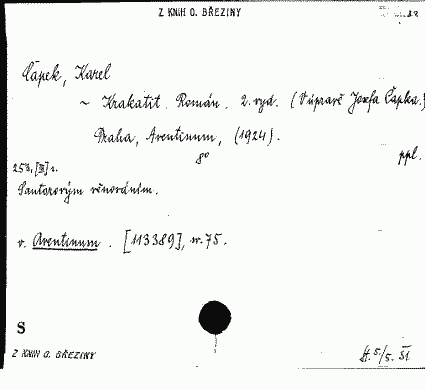 Z KNIH O. BŘEZINY
Čapek, Karel
~ Krakatit. Román. 2. vyd. (V úpravě Josefa Čapka.)
Praha, Aventinum, (1924).
8° ppl.
S autorovým věnováním.
v. Aventinum. [113389], sv. 75.
S
Z KNIH O. BŘEZINY